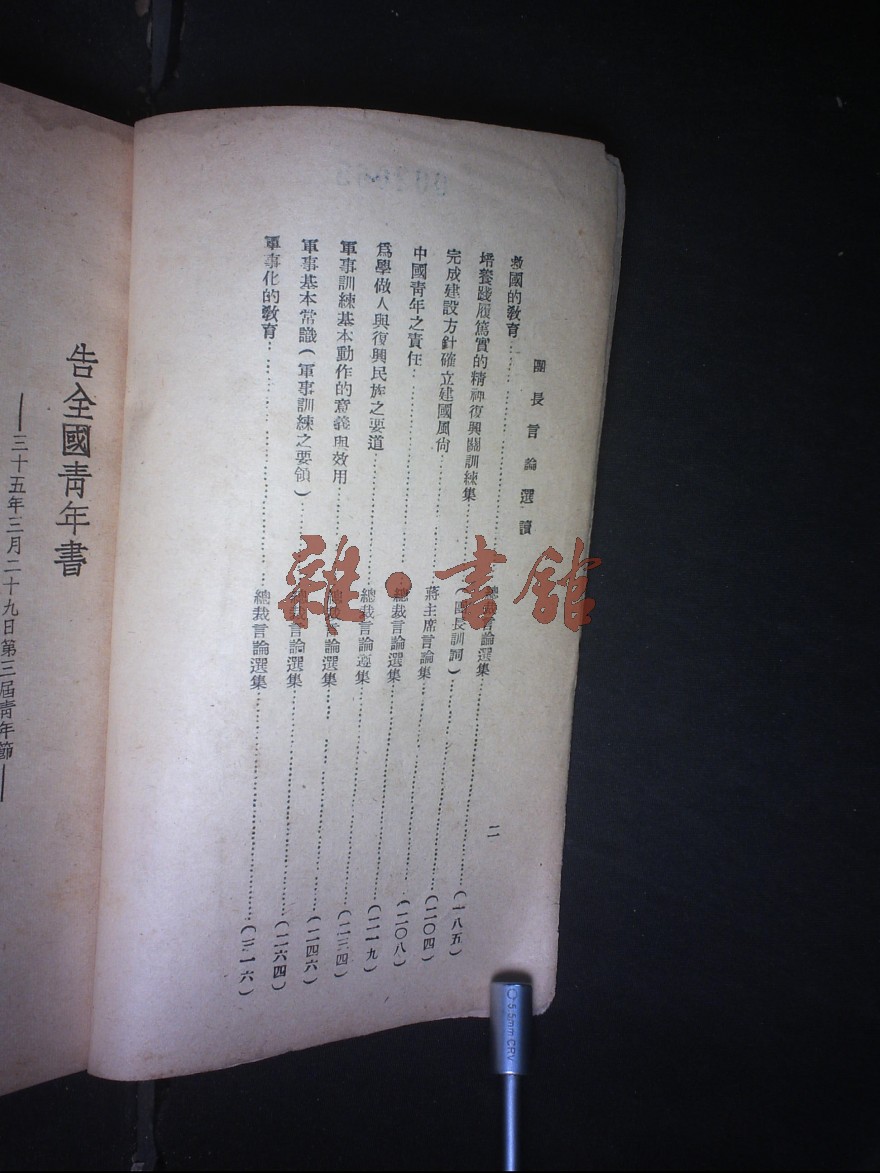 團長言論選讀
二
救國的教育……總裁言論選集……(一八五)
培養踐履篤實的精神復興關訓練集……(團長訓詞)……(二〇四)
完成建設方針確立建國風尚……蔣主席言論集……(二〇八)
中國青年之責任……總裁言論選集……(二一九)
爲學做人與復興民族之要道……總裁言論選集……(二三四)
軍事訓練基本動作的意義與效用……總裁言論選集……(二四六)
軍事基本常識(軍事訓練之要領)……總裁言論選集……(二六四)
軍事化的教育……總裁言論選集……(三一六)
告全國青年書
——三十五年三月二十九日第三屆青年節——
雜·書館
5.5mm CRV